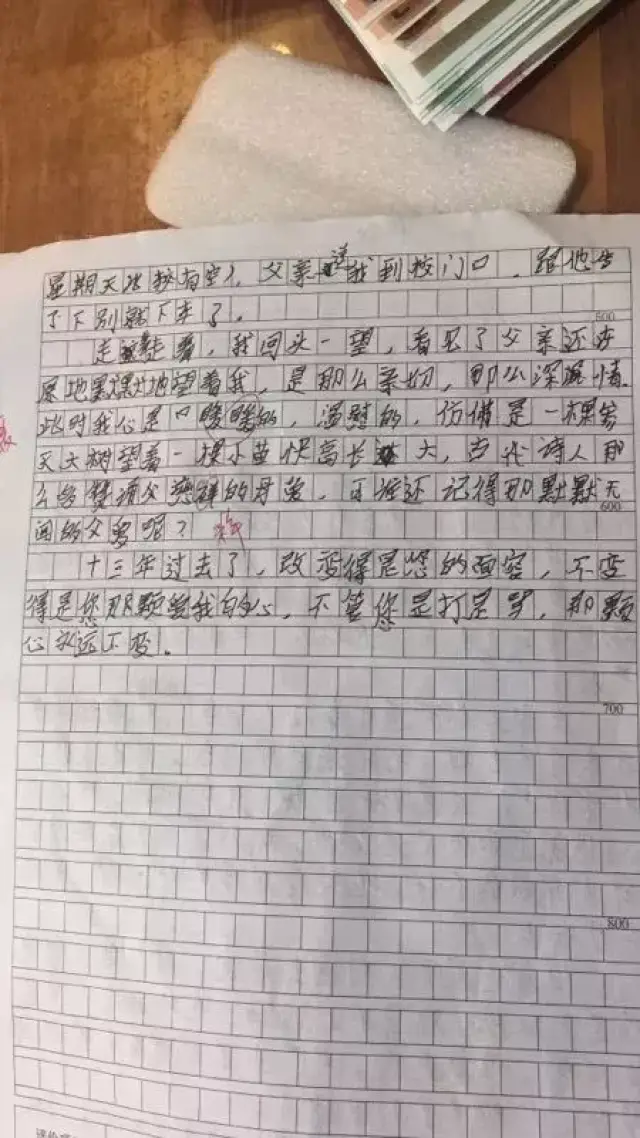 星期天法校有空，父亲送我到校门口，跟他告
了下别就下车了。
500
走着走着，我回头一望，看见了父亲还在
原地默默地望着我，是那么亲切，那么深情.
此时我心是口暖暖的，温慰的，仿佛是一棵
天大树望着一棵小苗快高长大，古代诗人那
么给赞颂父慈祥的母爱，可谁还记得那默默无
600
闻的父爱呢？
十三年过去了，改变得是您的面容，不变
得是您那颗爱我的心，不管您是打是骂，那颗
心永远不变.
700
800